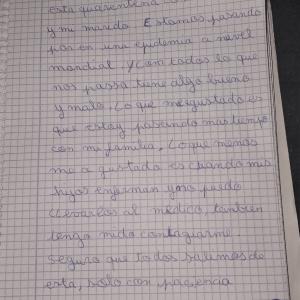 esta quarentena
y mi marido. Estamos pasando
por en una epidemia a nivel
mondial. y com todos lo que
nos passa tiene algo bueno
y malo. Lo que me gustado es
que estoy pasando mas tiempo
con mi familia. Lo que menos
me a gustado es cuando mis
hijos enferman y no puedo
llevarlos al médico, tambien
tengo miedo contagiarme.
Seguro que todos salimos de
esta, solo con paciencia